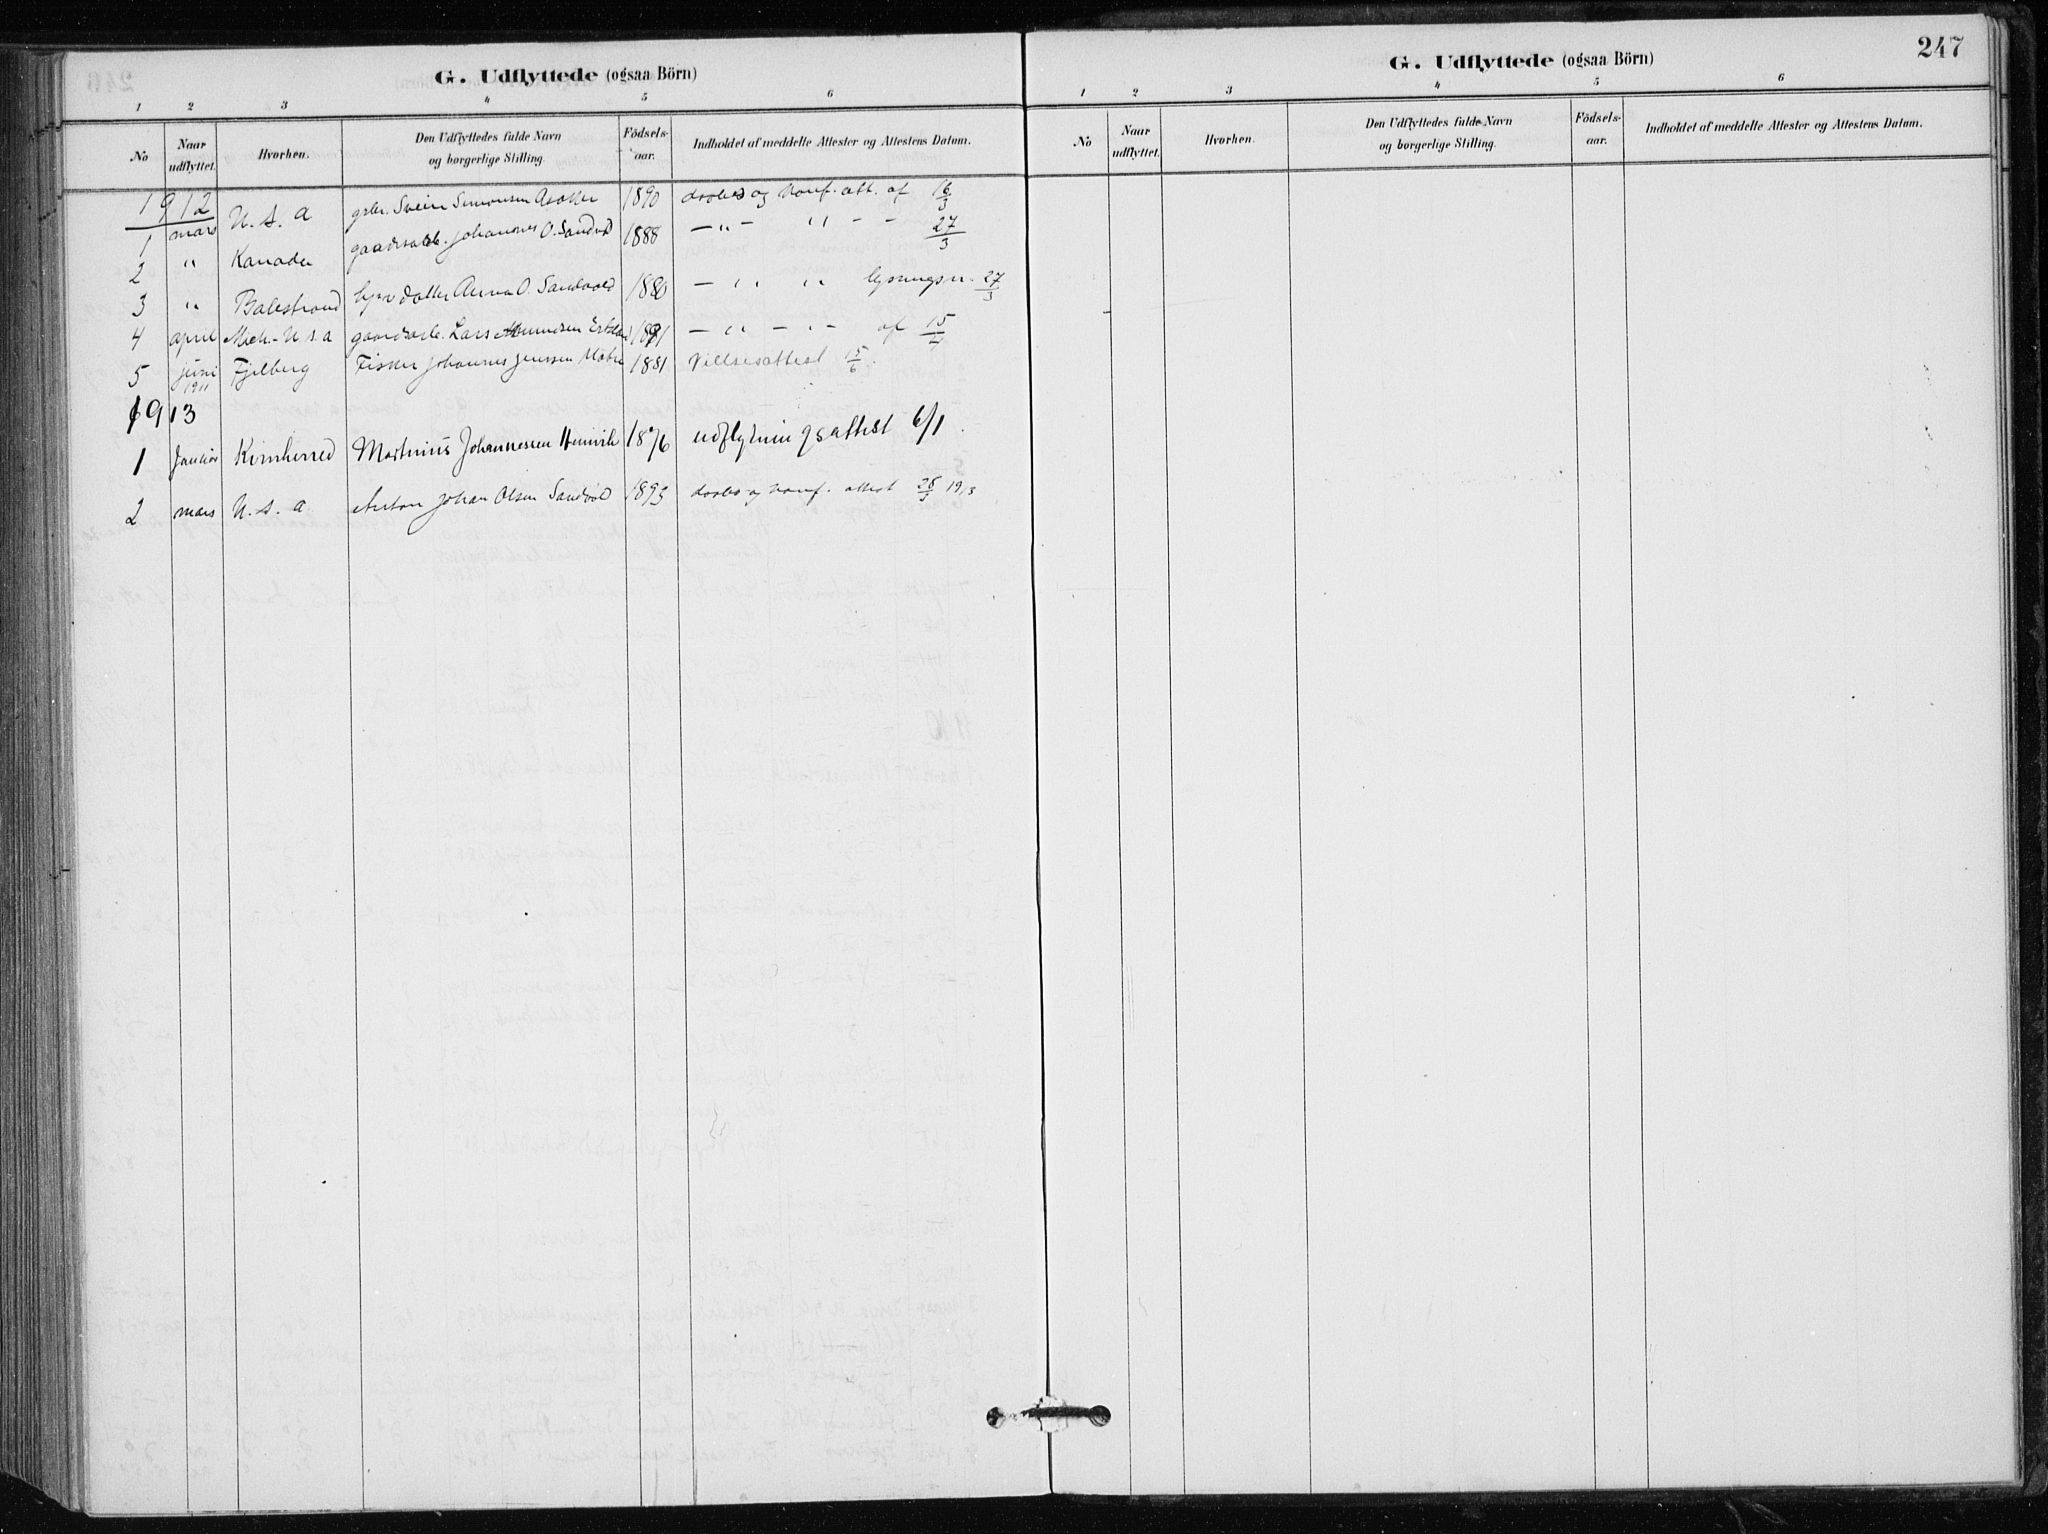 G. Udflyttede (ogsaa Börn)
1 2 3 4 5 6
No Naar udflyttet. Hvorhen. Den Udflyttedes fulde Navn og borgerlige Stilling. Födsels-aar. Indholdet af meddelte Attester og Attestens Datum.
1912
1 mars U. S. a Svein Simonsen 1890 daabs og konf. att. af 16/3
2 " Kanada Johannes O. Sandvold 1888 — " — " — — 27/3
3 " Balestrand datter Anna O. Sandvold 1880 — " " lysningsn. 27/3
4 april Mich. U s a gaardsarb. Lars 1891 — " — " — af 15/4
5 juni 1911 Fjelberg Fisker Johannes Jenssen 1881 Vielsesattest 15/6.
1913
1 Januar Kvinherred Martinius Johannessen 1876 udflytningsattest 6/1.
2 mars U. S. a Anton Johan Olsen Sandvold 1893 daabs og konf. attest 28/3 1913
247
G. Udflyttede (ogsaa Börn)
1 2 3 4 5 6
No Naar udflyttet. Hvorhen. Den Udflyttedes fulde Navn og borgerlige Stilling. Födsels-aar. Indholdet af meddelte Attester og Attestens Datum.